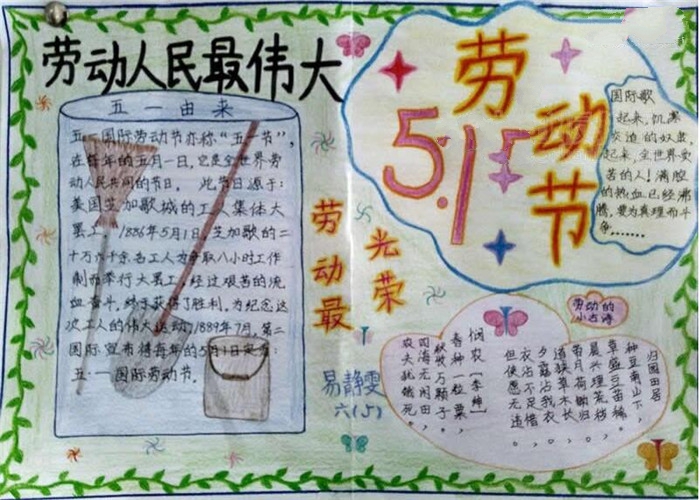 劳动人民最伟大
五一由来
五·一国际劳动节亦称"五一节",
在每年的五月一日,它是全世界劳
动人民共同的节日。 此节日源于:
美国芝加哥城的工人集体大
罢工。1886年5月1日,芝加哥的二
十万六千余名工人为争取八小时工作
制而举行大罢工,经过艰苦的流
血奋斗,终于获得了胜利,为纪念这
次工人的伟大运动,1889年7月,第二
国际宣布将每年的5月1日定为
五·一国际劳动节。
劳动最
光荣
易静雯
六(5)
劳动节
5.1
国际歌
起来,饥寒
交迫的奴隶,
起来,全世界受
苦的人!满腔
的热血已经沸
腾,要为真理而斗
争,……
劳动的
小古诗
归园田居
种豆南山下,
草盛豆苗稀
晨兴理荒秽
带月荷锄归
道狭草木长
夕露沾我衣
衣沾不足惜
但使愿无违。
悯农【李绅】
春种一粒粟,
秋收万颗子。
四海无闲田,
农夫犹饿死。